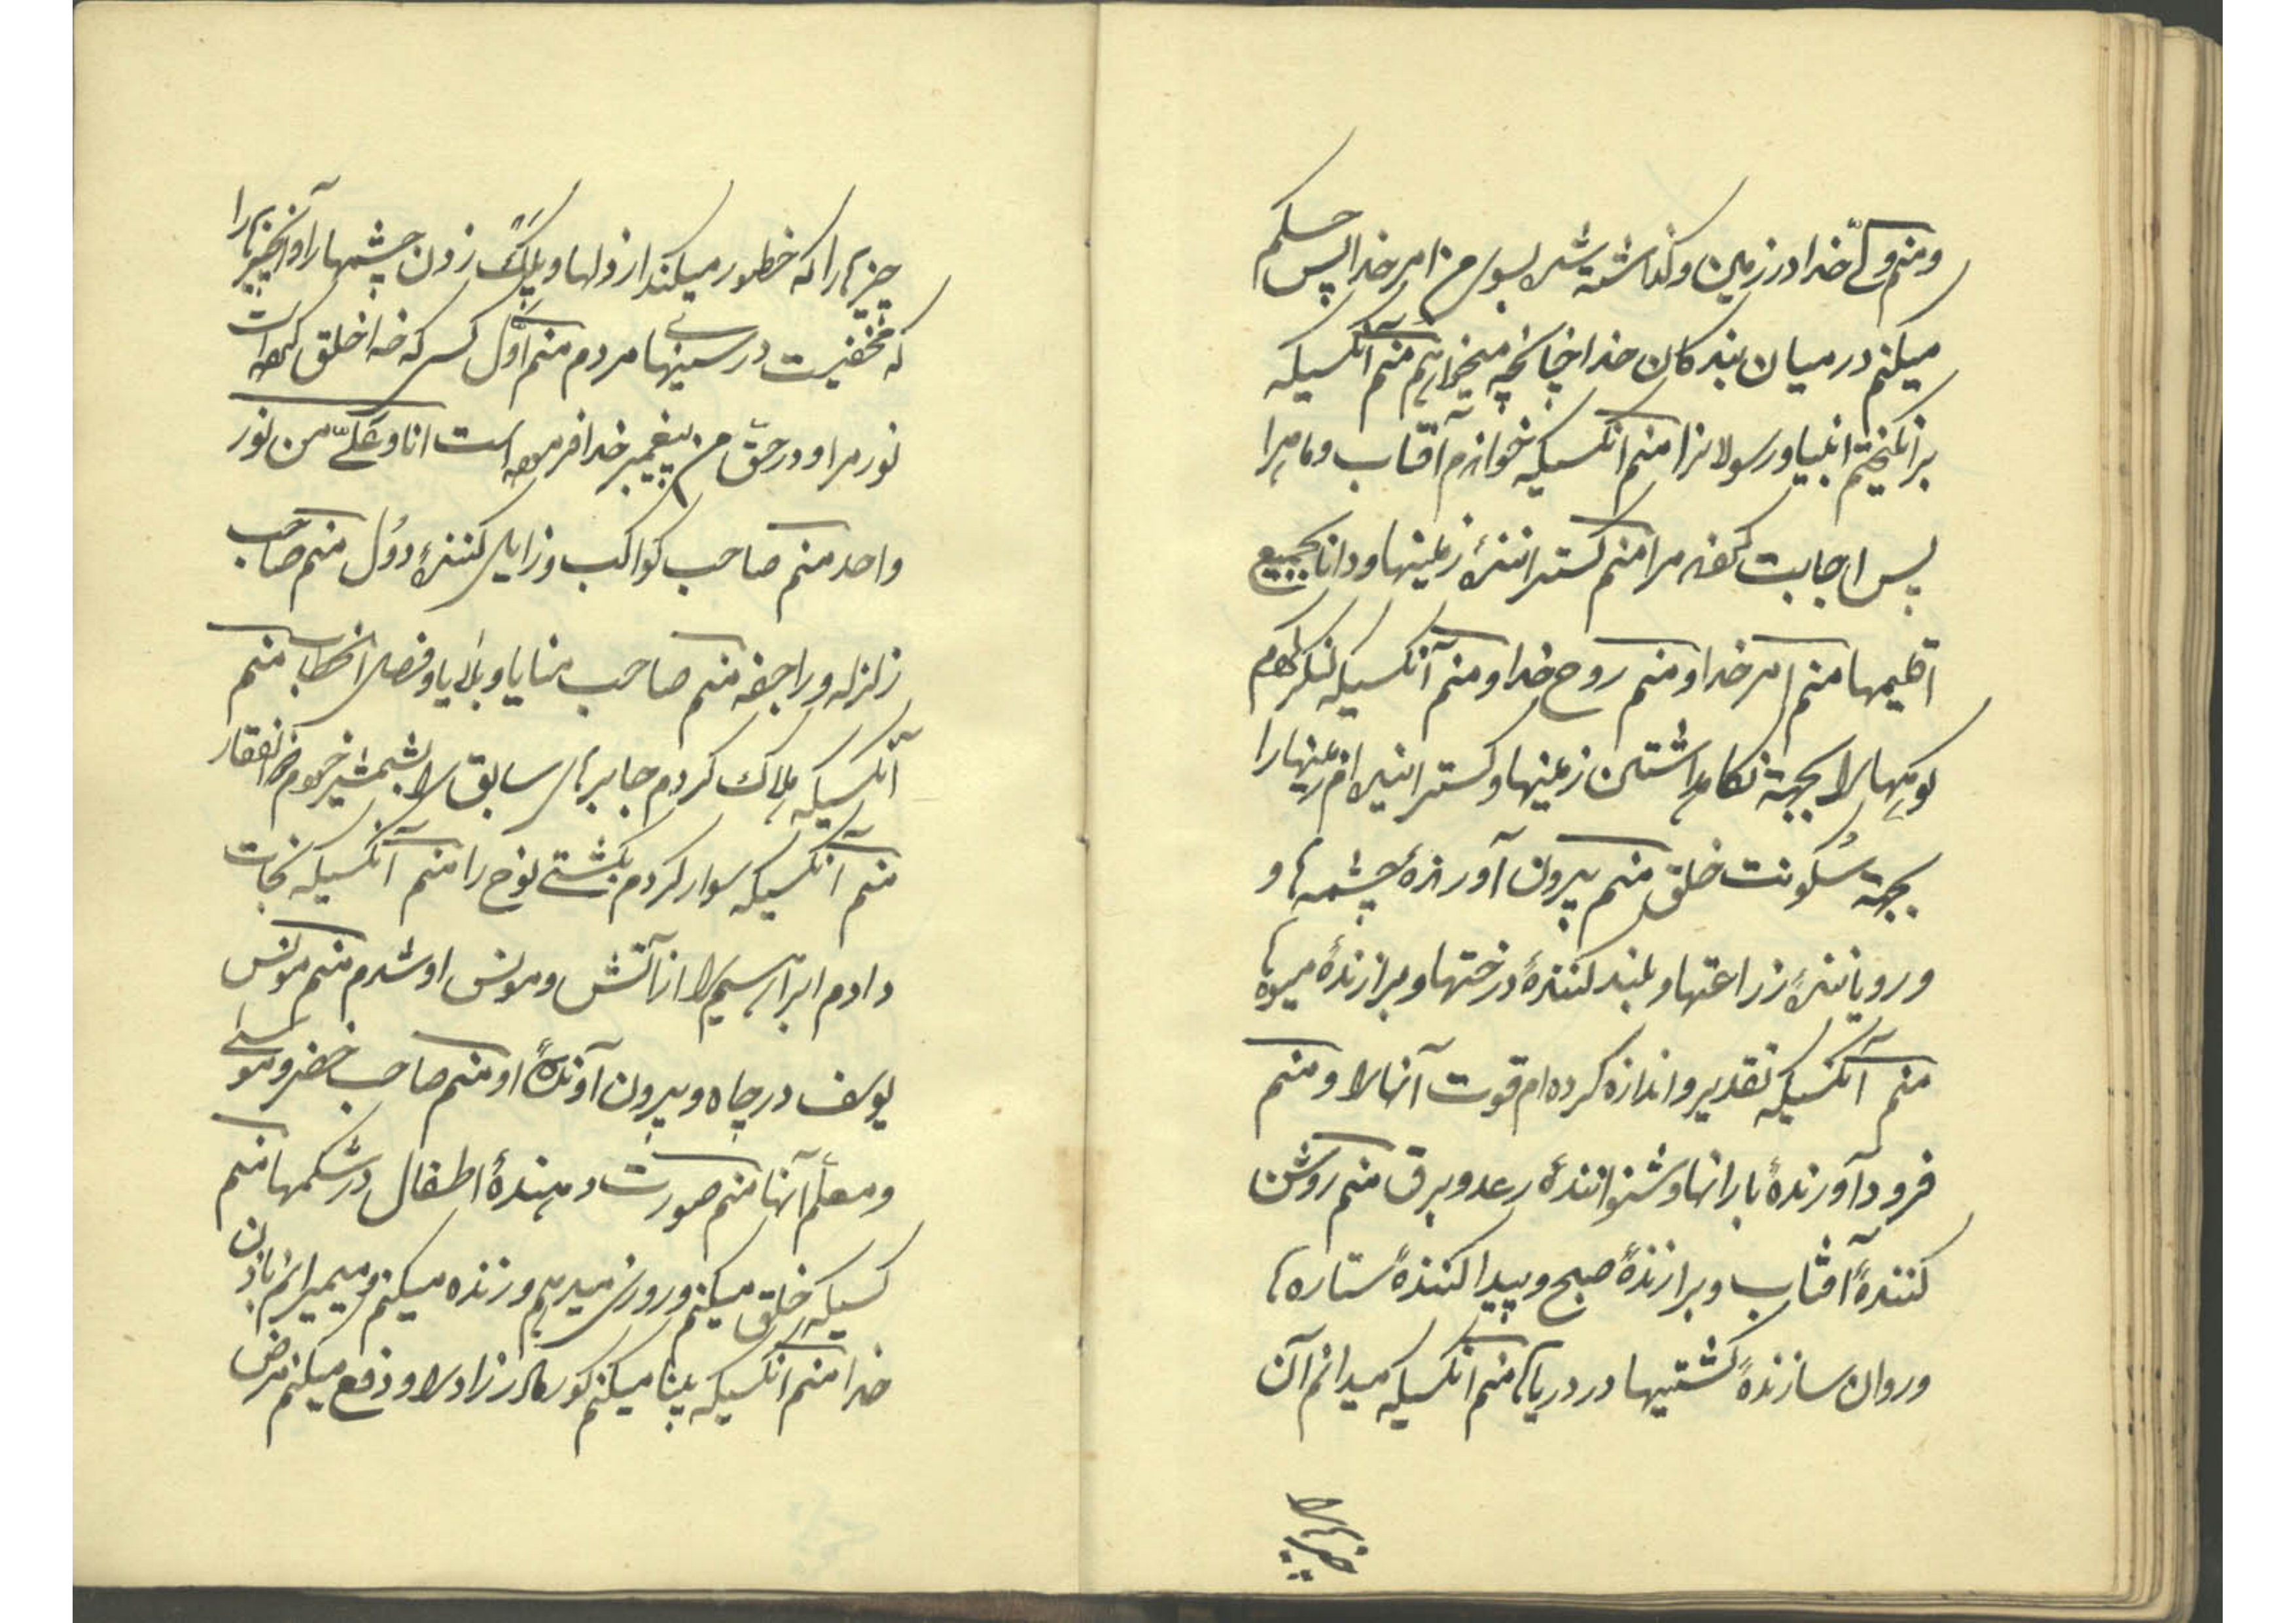 و منم ولّی خدا در زمین و گذاشته شده بسوی من امر خدا پس حکم
میکنم در میان بندکان خدا چنانچه میخواهم منم آنکسیکه
برانکیختم انبیا و رسولانرا منم آنکسیکه خواندم آفتاب و ماه را
پس اجابت کردند مرا منم کسترانندهٔ زمینها و دانا بجمیع
اقلیمها منم امر خدا و منم روح خدا و منم آنکسیکه لنکر کردم
کوهها را بجهة نکاه داشتن زمینها و کسترانیده‌ام زمینها را
بجهة سکونت خلق منم بیرون آورندهٔ چشمه‌ها و
و رویانندهٔ زراعتها و بلند کنندهٔ درختها و برازندهٔ میوه‌ها
منم آنکسیکه تقدیر و اندازه کرده‌ام قوت آنها را و منم
فرود آورندهٔ بارانها و شنوانندهٔ رعد و برق منم روشن
کنندهٔ آفتاب و برارندهٔ صبح و پیدا کنندهٔ ستاره‌ها
و روان سازندهٔ کشتیها در دریاها منم آنکسیکه میدانم آن
چیزها را
چیزها را که خطور میکند از دلها و پلک زدن چشمها را و آنچیزها را
که مخفیست در سینهای مردم منم اوّل کسی که خدا خلق کرده است
نور مرا و در حقّ من پیغمبر خدا فرموده است انا و علّی من نور
واحد منم صاحب کواکب و زایل کنندهٔ دوُل منم صاحب
زلزله و راجفه منم صاحب منایا و بلایا و فصل الخطاب منم
آنکسیکه هلاک کردم جابرهای سابق را بشمشیر خود ذوالفقار
منم آنکسیکه سوار کردم بکشتی نوح را منم آنکسیکه نجات
دادم ابراهیم را از آتش و مونس او شدم منم مونس
یوسف در چاه و بیرون آورندهٔ او منم صاحب خضر و موسی
و معلّم آنها منم صورت دهندهٔ اطفال در شکمها منم
کسیکه خلق میکنم و روزی میدهم و زنده میکنم و میمیرانم باذن
خدا منم آنکسیکه بینا میکنم کور مادرزاد را و دفع میکنم مرض